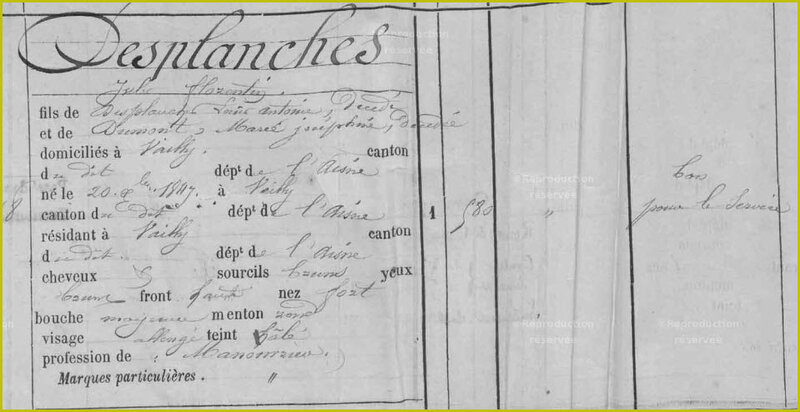 Desplanches
Jules Florentin.
fils de Desplanches Louis Antoine, Décédé
et de Dumont, Marie Joséphine, Décédée
domiciliés à Vailly. canton
du dit dépt de l'Aisne
né le 20 1847. à Vailly
canton du dit dépt de l'Aisne 1 580 "
résidant à Vailly canton
du dit. dépt de l'Aisne
Bon
pour le Service
cheveux sourcils bruns yeux
bruns front haut nez fort
bouche moyenne menton rond
visage allongé teint hâlé
profession de Manouvrier.
Marques particulières. "
8
©Reproduction
réservée
©Reproduction
réservée
©Reproduction
réservée
©Reproduction
réservée